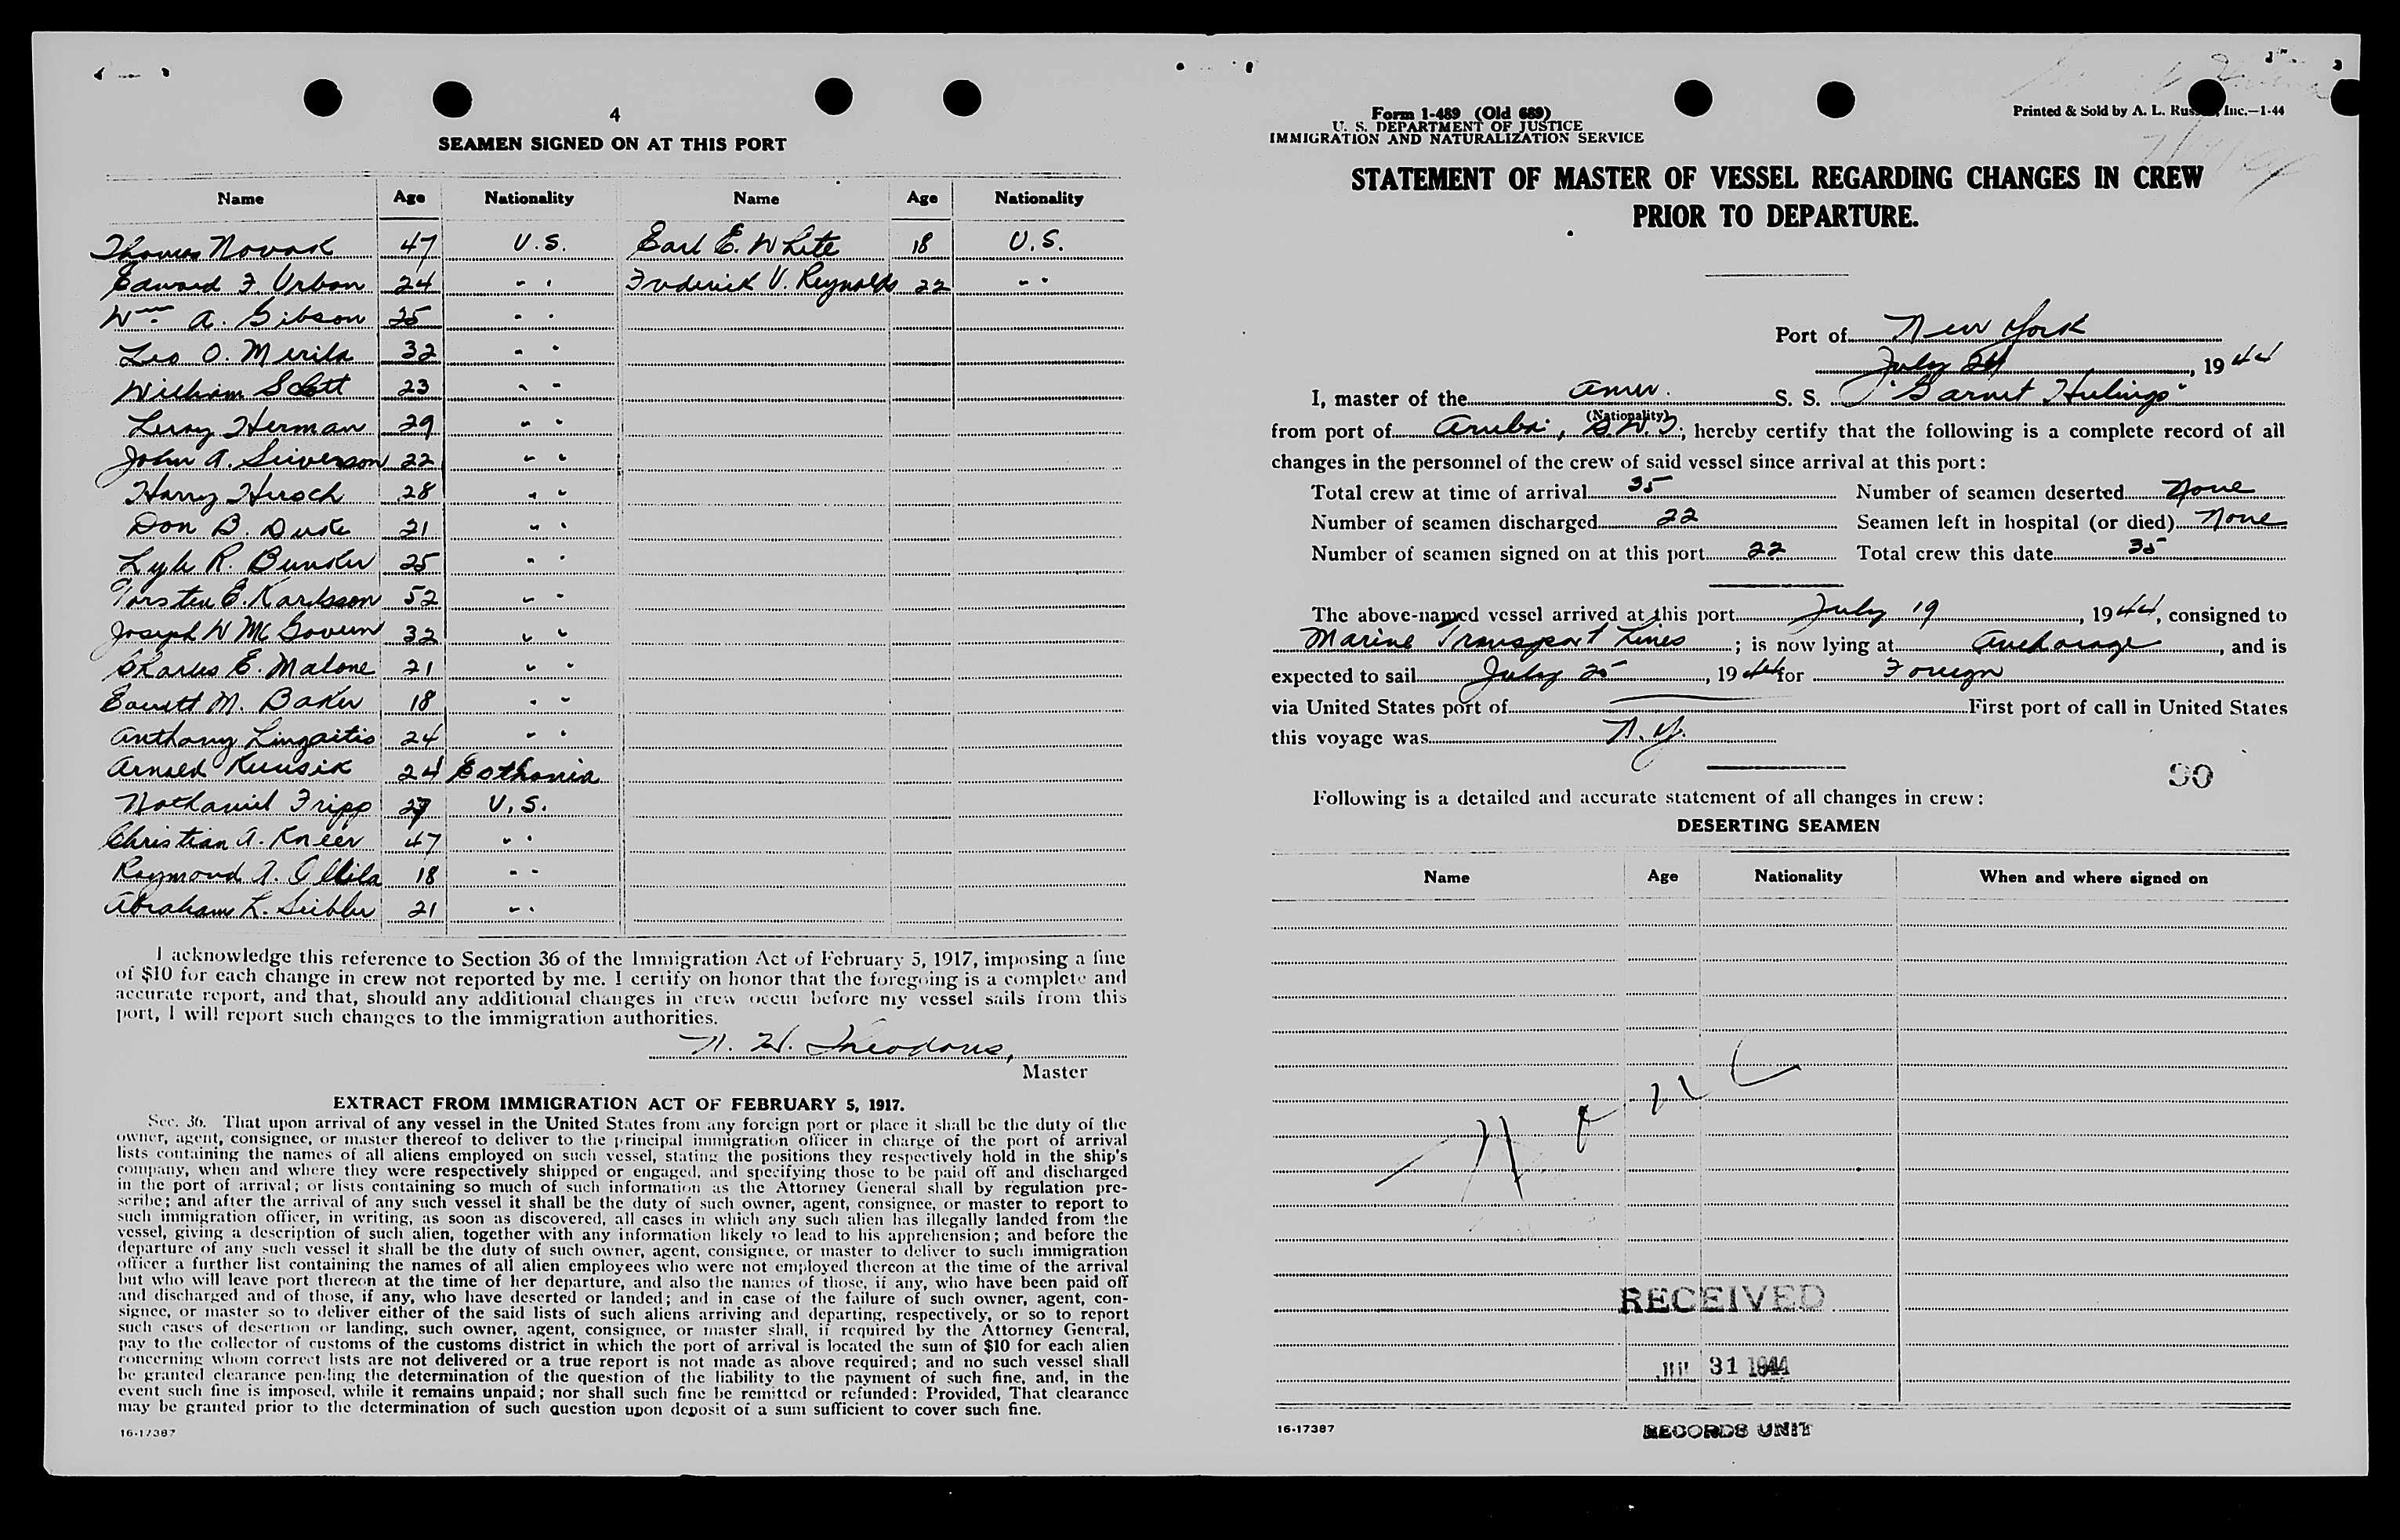 4
SEAMEN SIGNED ON AT THIS PORT
Name Age Nationality Name Age Nationality
Thomas Novak 47 U.S. Earl E. White 18 U.S.
Edward F. Urban 24 " " Frederick V. Reynolds 22 " "
Wm A. Gibson 25 " "
Leo O. Merila 32 " "
William Scott 23 " "
Leroy Herman 29 " "
John A. Siiverson 22 " "
Harry Hirsch 28 " "
Don B. 21 " "
Lyle R. Bunker 25 " "
Torsten E. Karlsson 52 " "
Joseph W McGovern 32 " "
Charles E. Malone 21 " "
Everett M. Baker 18 " "
Anthony Lingaitis 24 " "
Arnold Kuusik 24 Esthonia
Nathaniel Fripp 27 U.S.
Christian A. Kneer 47 " "
Raymond A. Ollila 18 " "
Abraham L. Leibler 21 " "
I acknowledge this reference to Section 36 of the Immigration Act of February 5, 1917, imposing a fine
of $10 for each change in crew not reported by me. I certify on honor that the foregoing is a complete and
accurate report, and that, should any additional changes in crew occur before my vessel sails from this
port, I will report such changes to the immigration authorities.
N. H. Theodorus,
Master
EXTRACT FROM IMMIGRATION ACT OF FEBRUARY 5, 1917.
Sec. 36. That upon arrival of any vessel in the United States from any foreign port or place it shall be the duty of the
owner, agent, consignee, or master thereof to deliver to the principal immigration officer in charge of the port of arrival
lists containing the names of all aliens employed on such vessel, stating the positions they respectively hold in the ship's
company, when and where they were respectively shipped or engaged, and specifying those to be paid off and discharged
in the port of arrival; or lists containing so much of such information as the Attorney General shall by regulation pre-
scribe; and after the arrival of any such vessel it shall be the duty of such owner, agent, consignee, or master to report to
such immigration officer, in writing, as soon as discovered, all cases in which any such alien has illegally landed from the
vessel, giving a description of such alien, together with any information likely to lead to his apprehension; and before the
departure of any such vessel it shall be the duty of such owner, agent, consignee, or master to deliver to such immigration
officer a further list containing the names of all alien employees who were not employed thereon at the time of the arrival
but who will leave port thereon at the time of her departure, and also the names of those, if any, who have been paid off
and discharged and of those, if any, who have deserted or landed; and in case of the failure of such owner, agent, con-
signee, or master so to deliver either of the said lists of such aliens arriving and departing, respectively, or so to report
such cases of desertion or landing, such owner, agent, consignee, or master shall, if required by the Attorney General,
pay to the collector of customs of the customs district in which the port of arrival is located the sum of $10 for each alien
concerning whom correct lists are not delivered or a true report is not made as above required; and no such vessel shall
be granted clearance pending the determination of the question of the liability to the payment of such fine, and, in the
event such fine is imposed, while it remains unpaid; nor shall such fine be remitted or refunded: Provided, That clearance
may be granted prior to the determination of such question upon deposit of a sum sufficient to cover such fine.
16-17387
Form 1-489 (Old 689)
U. S. DEPARTMENT OF JUSTICE
IMMIGRATION AND NATURALIZATION SERVICE
Printed & Sold by A. L. Inc.—1-44
STATEMENT OF MASTER OF VESSEL REGARDING CHANGES IN CREW
PRIOR TO DEPARTURE.
Port of New York
July 24, 1944
I, master of the Amer. S. S. "Garnet Hulings"
(Nationality)
from port of Aruba, D.W.I; hereby certify that the following is a complete record of all
changes in the personnel of the crew of said vessel since arrival at this port:
Total crew at time of arrival 35 Number of seamen deserted None
Number of seamen discharged 22 Seamen left in hospital (or died) None
Number of seamen signed on at this port 22 Total crew this date 35
The above-named vessel arrived at this port July 19, 1944, consigned to
Marine Transport Lines; is now lying at Anchorage, and is
expected to sail July 25, 1944 for Foreign
via United States port of First port of call in United States
this voyage was N.Y.
90
Following is a detailed and accurate statement of all changes in crew:
DESERTING SEAMEN
Name Age Nationality When and where signed on
None
RECEIVED
JUL 31 1944
16-17387
RECORDS UNIT